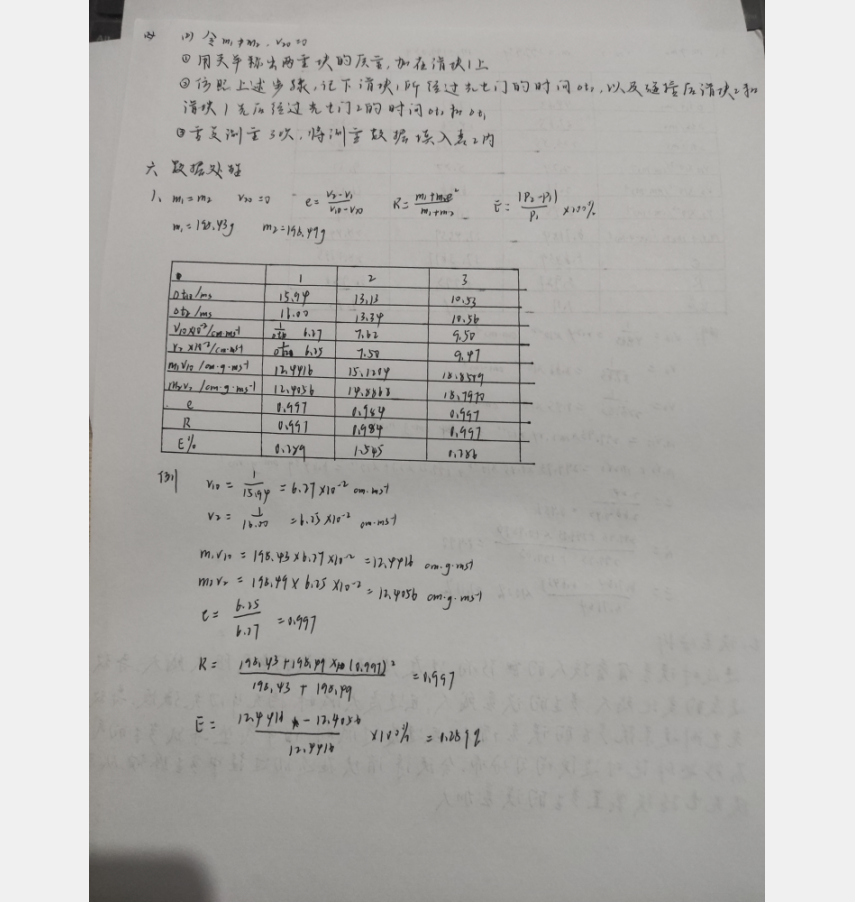 (2) 令 m₁≠m₂, v₂₀=0
① 用天平称出两重块的质量,加在滑块1上
② 仿照上述步骤,记下滑块1所经过光电门的时间Δt₁₀,以及碰撞后滑块2和
滑块1先后经过光电门2的时间Δt₂和Δt₁
③ 重复测量3次,将测量数据填入表2内
六 数据处理
1、 m₁=m₂ v₂₀=0 e=(v₂-v₁)/(v₁₀-v₂₀) R=(m₁+m₂e²)/(m₁+m₂) E=|P₂-P₁|/P₁ ×100%
m₁=198.43g m₂=198.49g
1 2 3
Δt₁₀/ms 15.94 13.13 10.53
Δt₂/ms 16.00 13.34 10.56
v₁₀×10⁻²/cm·ms⁻¹ 6.27 7.62 9.50
v₂×10⁻²/cm·ms⁻¹ 6.25 7.50 9.47
m₁v₁₀/cm·g·ms⁻¹ 12.4416 15.1204 18.8509
m₂v₂/cm·g·ms⁻¹ 12.4056 14.8868 18.7970
e 0.997 0.984 0.997
R 0.997 0.984 0.997
E% 0.289 1.545 0.286
例 v₁₀ = 1/15.94 = 6.27×10⁻² cm·ms⁻¹
v₂ = 1/16.00 = 6.25×10⁻² cm·ms⁻¹
m₁v₁₀ = 198.43×6.27×10⁻² = 12.4416 cm·g·ms⁻¹
m₂v₂ = 198.49×6.25×10⁻² = 12.4056 cm·g·ms⁻¹
e = 6.25/6.27 = 0.997
R = (198.43+198.49×(0.997)²)/(198.43+198.49) = 0.997
E = (12.4416-12.4056)/12.4416 ×100% = 0.289%